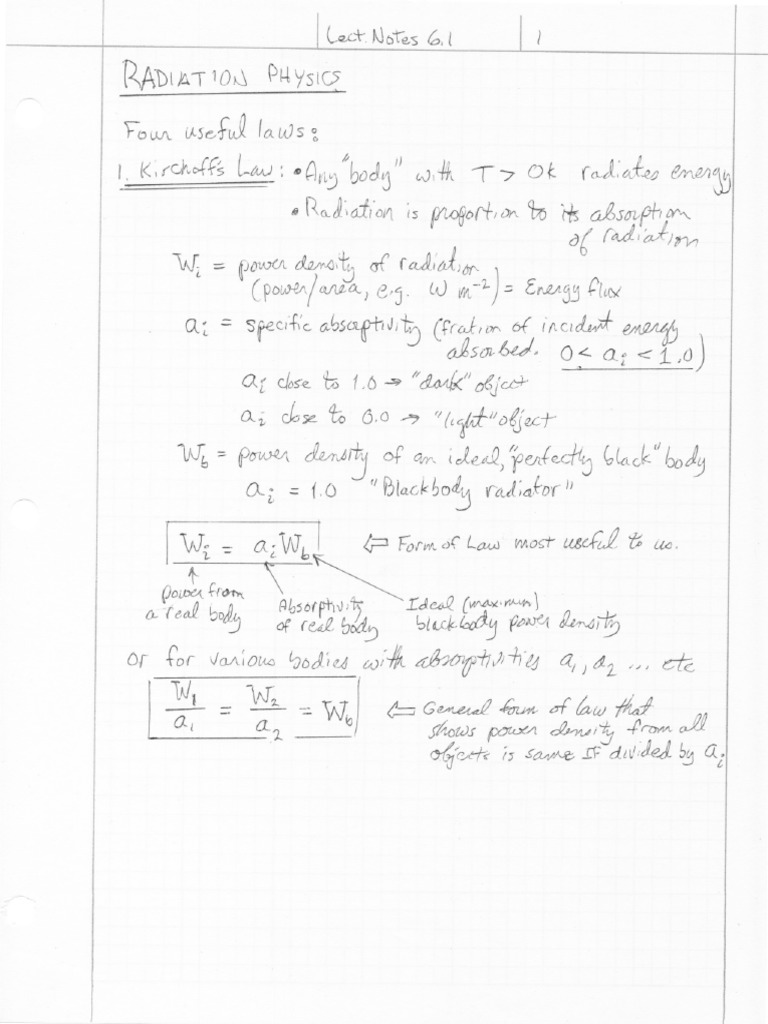 Lect. Notes 6.1 1
RADIATION PHYSICS
Four useful laws:
1. Kirchoff's Law: • Any "body" with T > 0K radiates energy
• Radiation is proportion to its absorption
of radiation
Wi = power density of radiation
(power/area, e.g. W m⁻²) = Energy flux
ai = specific absorptivity (fration of incident energy
absorbed. 0 < ai < 1.0)
ai close to 1.0 → "dark" object
ai close to 0.0 → "light" object
Wb = power density of an ideal, "perfectly black" body
ai = 1.0 "Blackbody radiator"
Wi = aiWb ⇐ Form of Law most useful to us.
power from
a real body
Absorptivity
of real body
Ideal (maximum)
blackbody power density
or for various bodies with absorptivities a₁, a₂ ... etc
W₁/a₁ = W₂/a₂ = Wb ⇐ General form of law that
shows power density from all
objects is same IF divided by ai